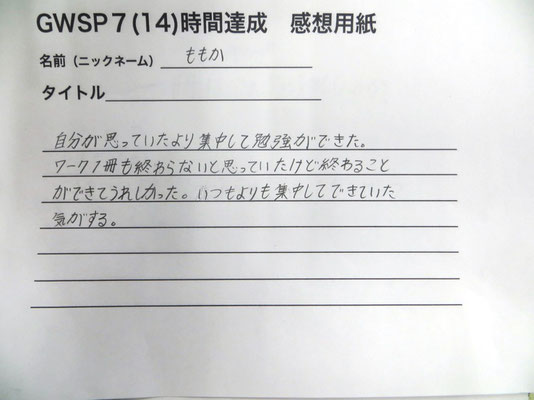 GWSP7(14)時間達成　感想用紙
名前（ニックネーム） ももか
タイトル
自分が思っていたより集中して勉強ができた。
ワーク1冊も終わらないと思っていたけど終わること
ができてうれしかった。いつもよりも集中してできていた
気がする。